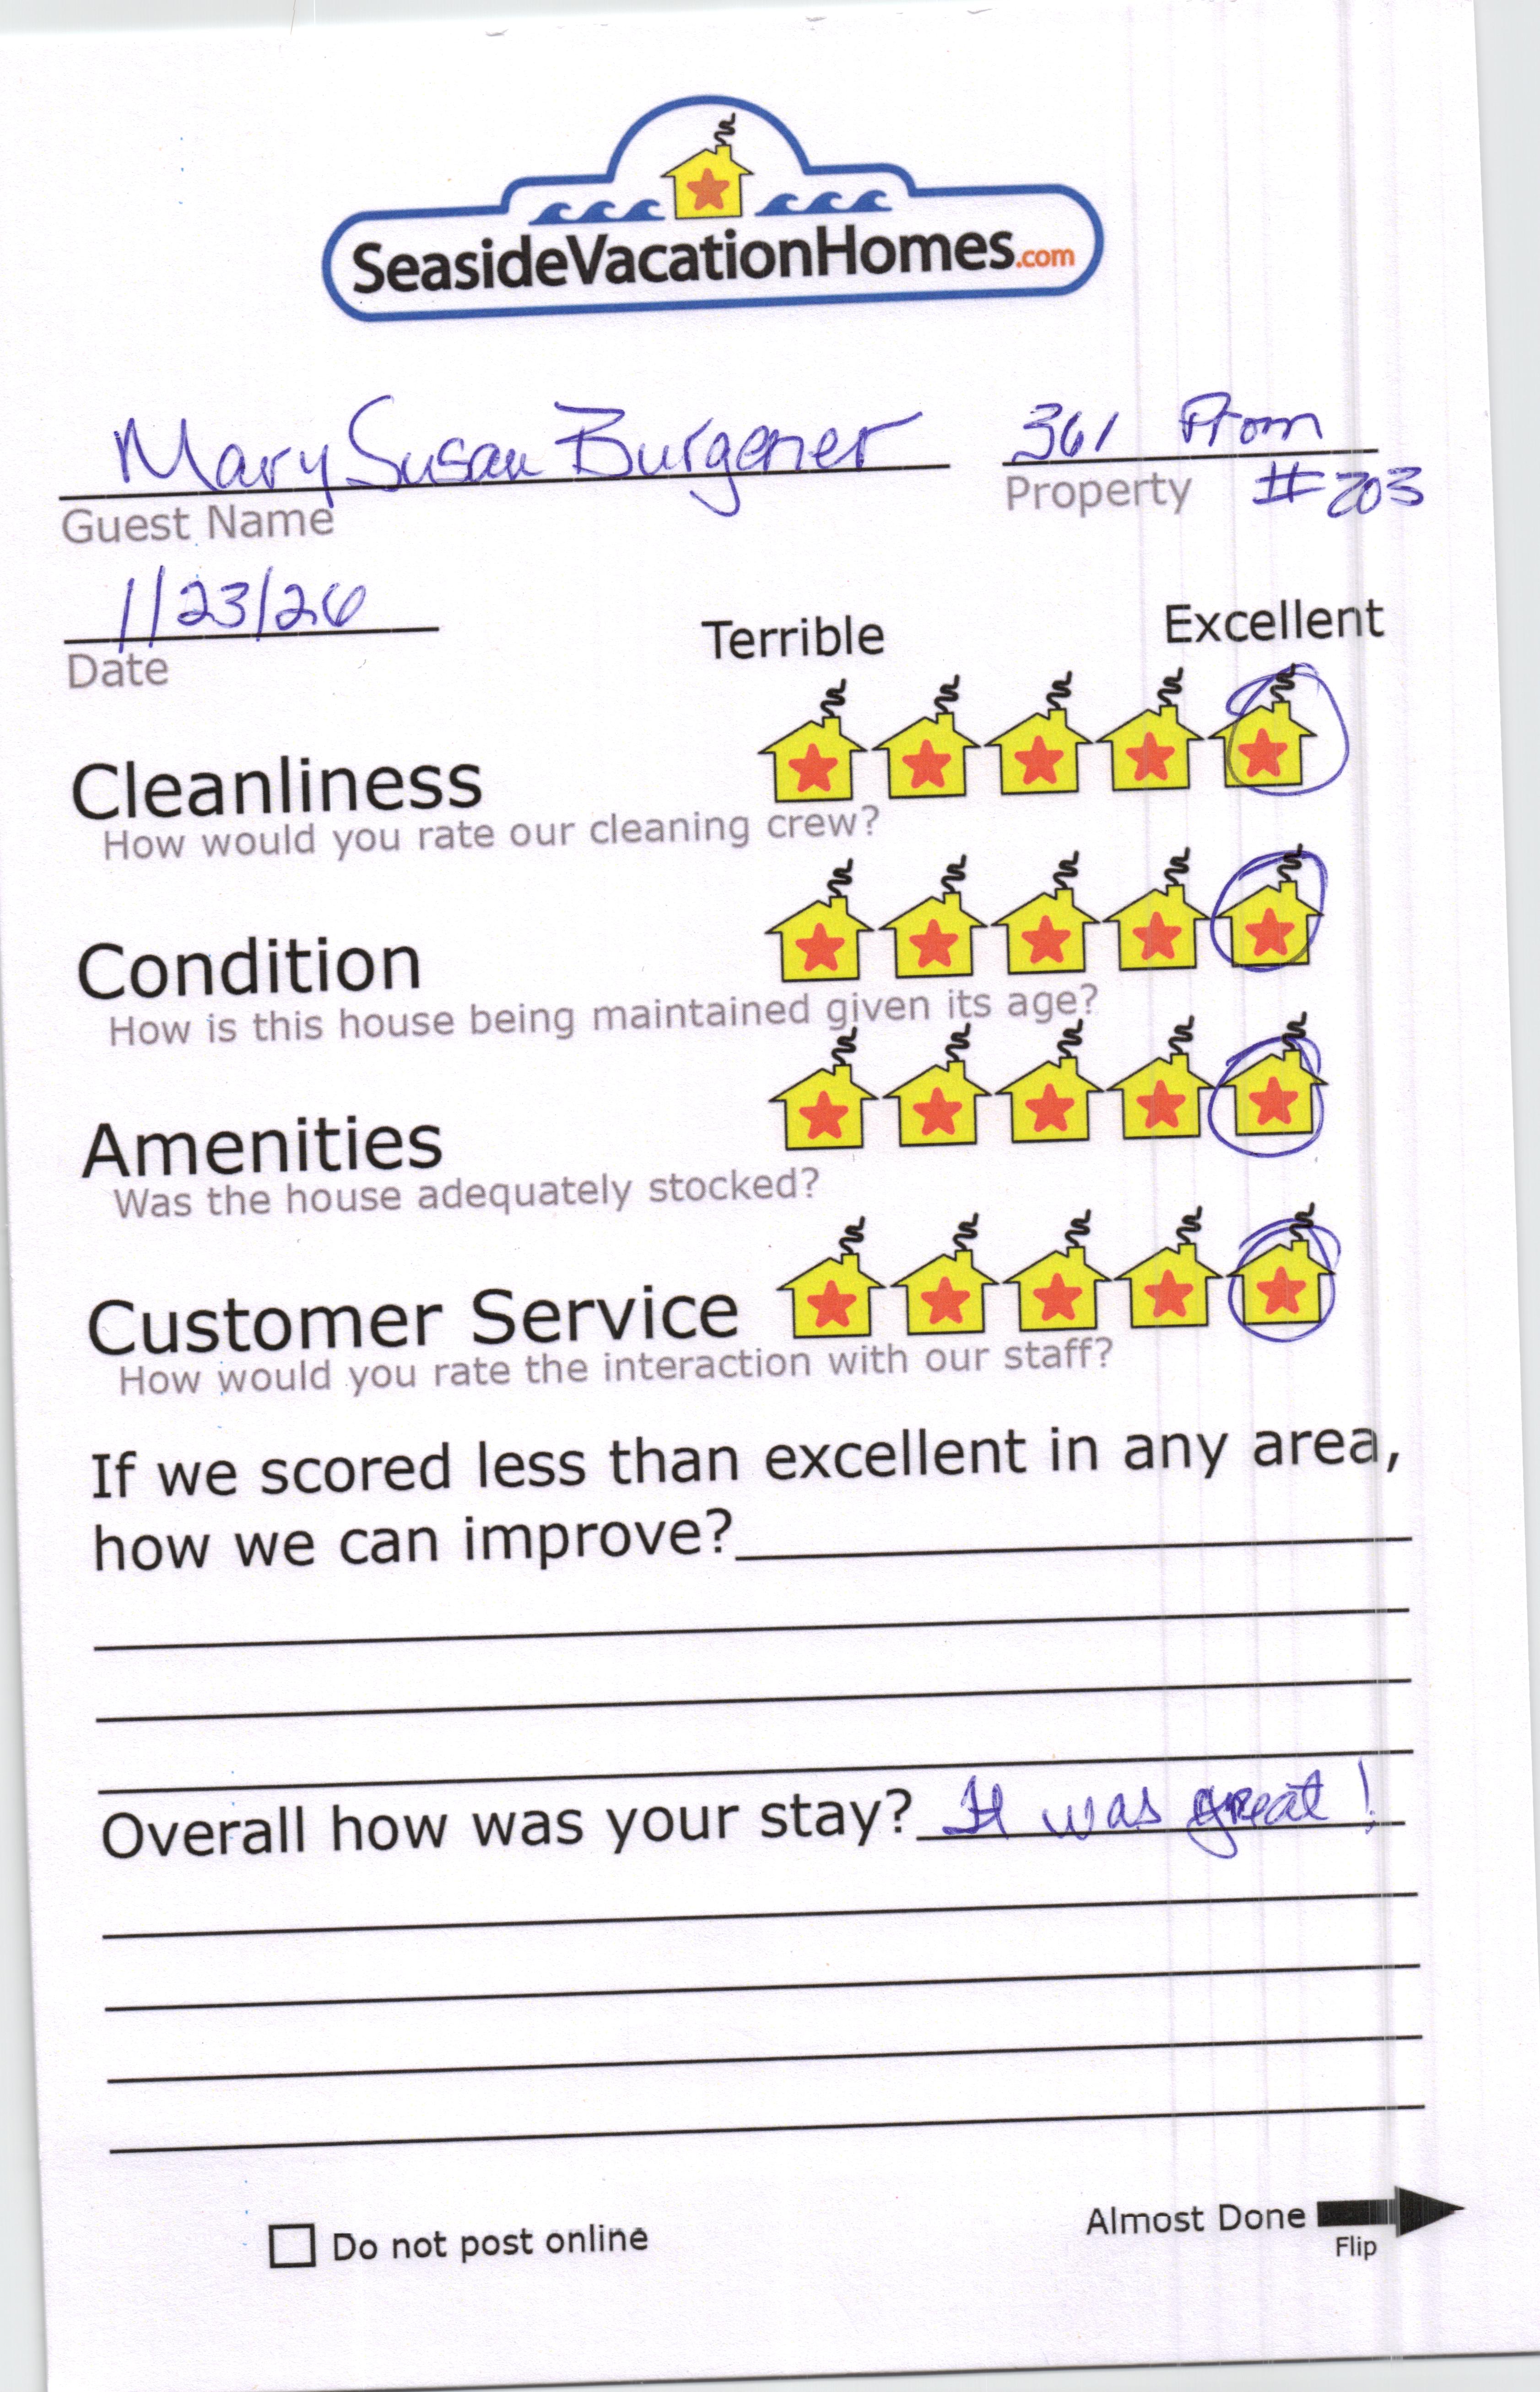 SeasideVacationHomes.com
Mary Susan Burgener 361 Prom
Guest Name Property #203
1/23/26
Date
Terrible Excellent
Cleanliness
How would you rate our cleaning crew?
Condition
How is this house being maintained given its age?
Amenities
Was the house adequately stocked?
Customer Service
How would you rate the interaction with our staff?
If we scored less than excellent in any area,
how we can improve?
Overall how was your stay? It was great!
Do not post online
Almost Done
Flip